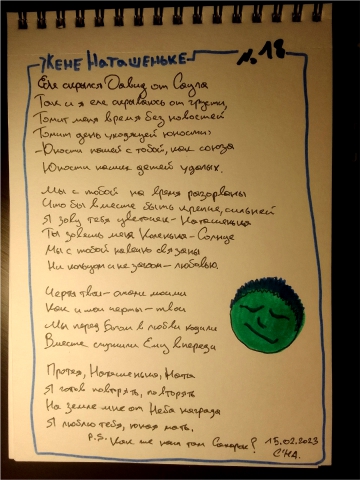 Жене Наташеньке
№ 18
Еле скрылся Давид от Саула
Так и я еле скрываюсь от грусти,
Томит меня время без новостей
Томит день уходящей юности
- Юности нашей с тобой, как союза
Юности наших детей удалых.
Мы с тобой на время разорваны
Что бы вместе быть крепче, сильней
Я зову тебя цветочек - Наташенька
Ты зовешь меня - Солнце
Мы с тобой навечно связаны
Ни кольцом и не законом - любовью.
Черты твои - стали моими
Как и мои черты - твои
Мы перед Богом в любви ходили
Вместе служили Ему впереди
Протея, Наташенька, Ната
Я готов повторять, повторять
На земле мне от Неба награда
Я люблю тебя, юная мать.
P.S. Как же наш там Сахарок?
15.02.2023
СЧА.